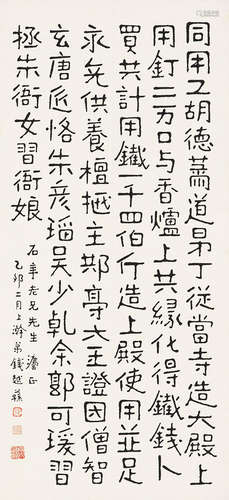 同用工胡德蕭道昴丁從當寺造大殿上
用釘二万口与香爐上共緣化得鐵錢卜
買共計用鐵一千四伯斤造上殿使用並足
永充供養檀越主鄴亭大主證因僧智
玄唐近恪朱彥瑙吴少乹余鄓可瑗習
拯朱衙女習衙娘
石年老兄先生 瀋正
乙卯二月上澣弟錢越蓀